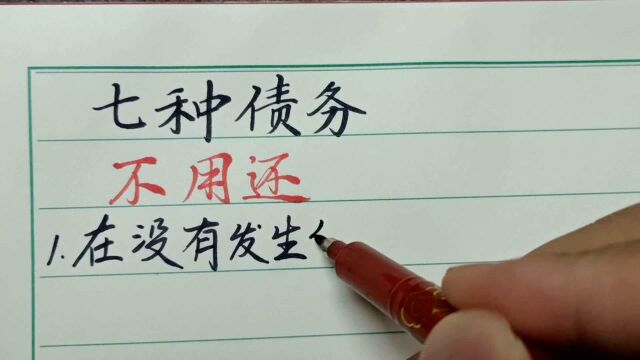 七种债务
不用还
1.在没有发生